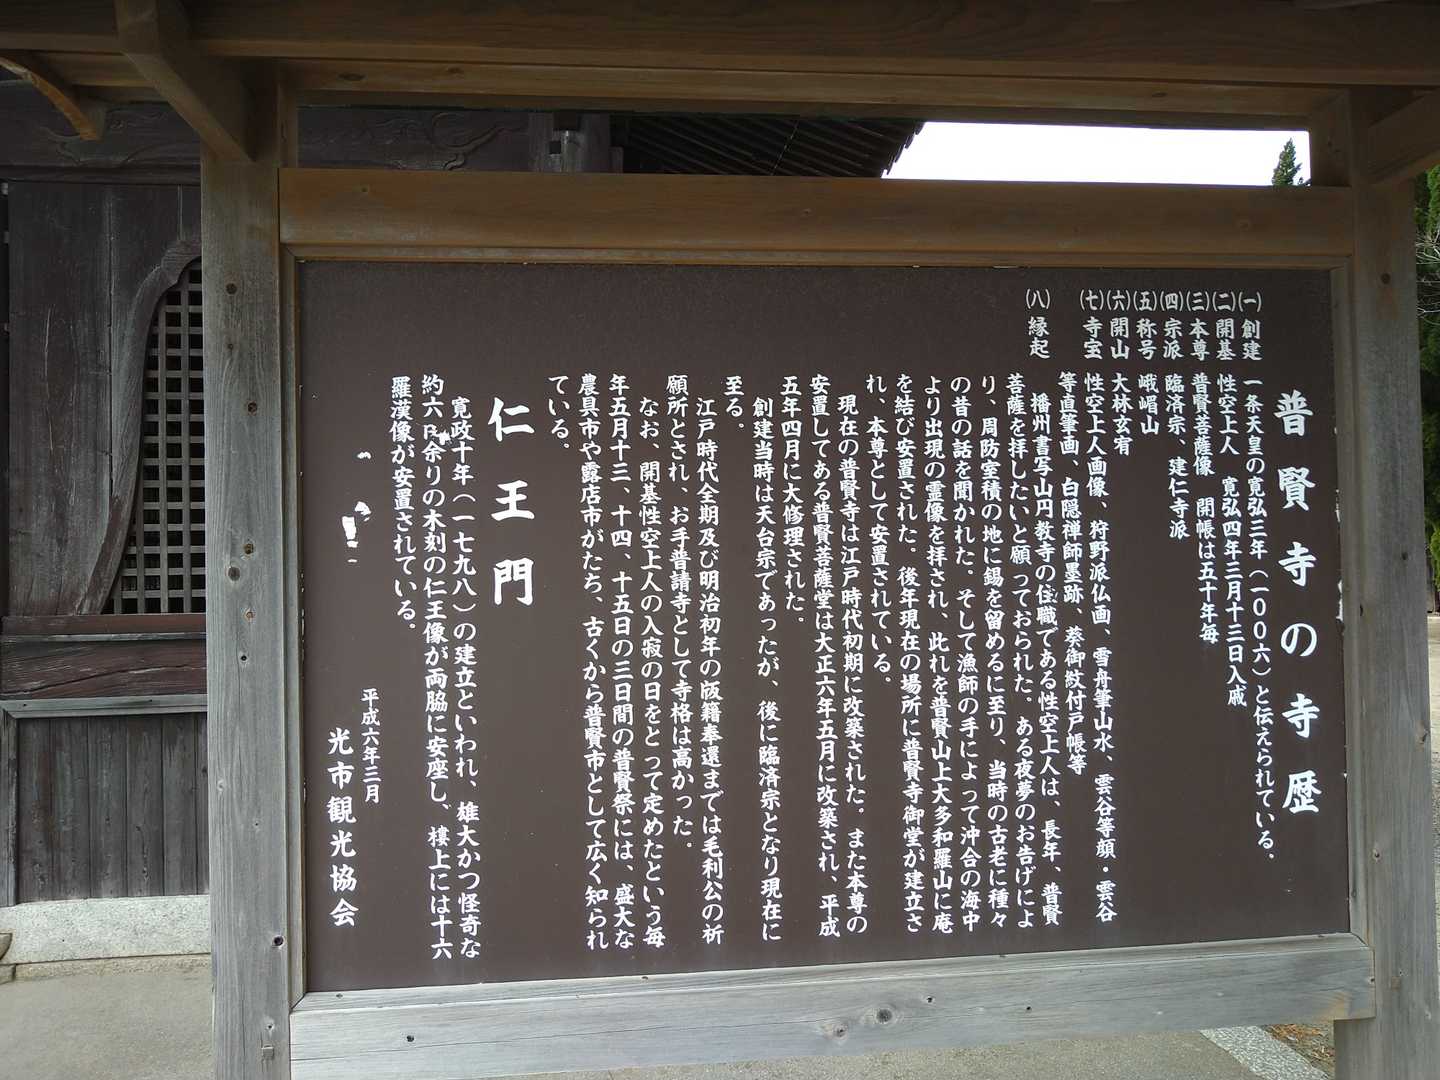 普賢寺の寺歴
(一)創建 一条天皇の寛弘三年(一〇〇六)と伝えられている。
(二)開基 性空上人 寛弘四年三月十三日入寂
(三)本尊 普賢菩薩像 開帳は五十年毎
(四)宗派 臨済宗、建仁寺派
(五)称号 峨嵋山
(六)開山 大林玄宥
(七)寺宝 性空上人画像、狩野派仏画、雪舟筆山水、雲谷等顔・雲谷
等直筆画、白隠禅師墨跡、葵御紋付戸帳等
(八)縁起 播州書写山円教寺の住職である性空上人は、長年、普賢
菩薩を拝したいと願っておられた。ある夜夢のお告げによ
り、周防室積の地に錫を留めるに至り、当時の古老に種々
の昔の話を聞かれた。そして漁師の手によって沖合の海中
より出現の霊像を拝され、此れを普賢山上大多和羅山に庵
を結び安置された。後年現在の場所に普賢寺御堂が建立さ
れ、本尊として安置されている。
現在の普賢寺は江戸時代初期に改築された。また本尊の
安置してある普賢菩薩堂は大正六年五月に改築され、平成
五年四月に大修理された。
創建当時は天台宗であったが、後に臨済宗となり現在に
至る。
江戸時代全期及び明治初年の版籍奉還までは毛利公の祈
願所とされ、お手普請寺として寺格は高かった。
なお、開基性空上人の入寂の日をとって定めたという毎
年五月十三、十四、十五日の三日間の普賢祭には、盛大な
農具市や露店市がたち、古くから普賢市として広く知られ
ている。
仁王門
寛政十年(一七九八)の建立といわれ、雄大かつ怪奇な
約六尺余りの木刻の仁王像が両脇に安座し、楼上には十六
羅漢像が安置されている。
平成六年三月
光市観光協会